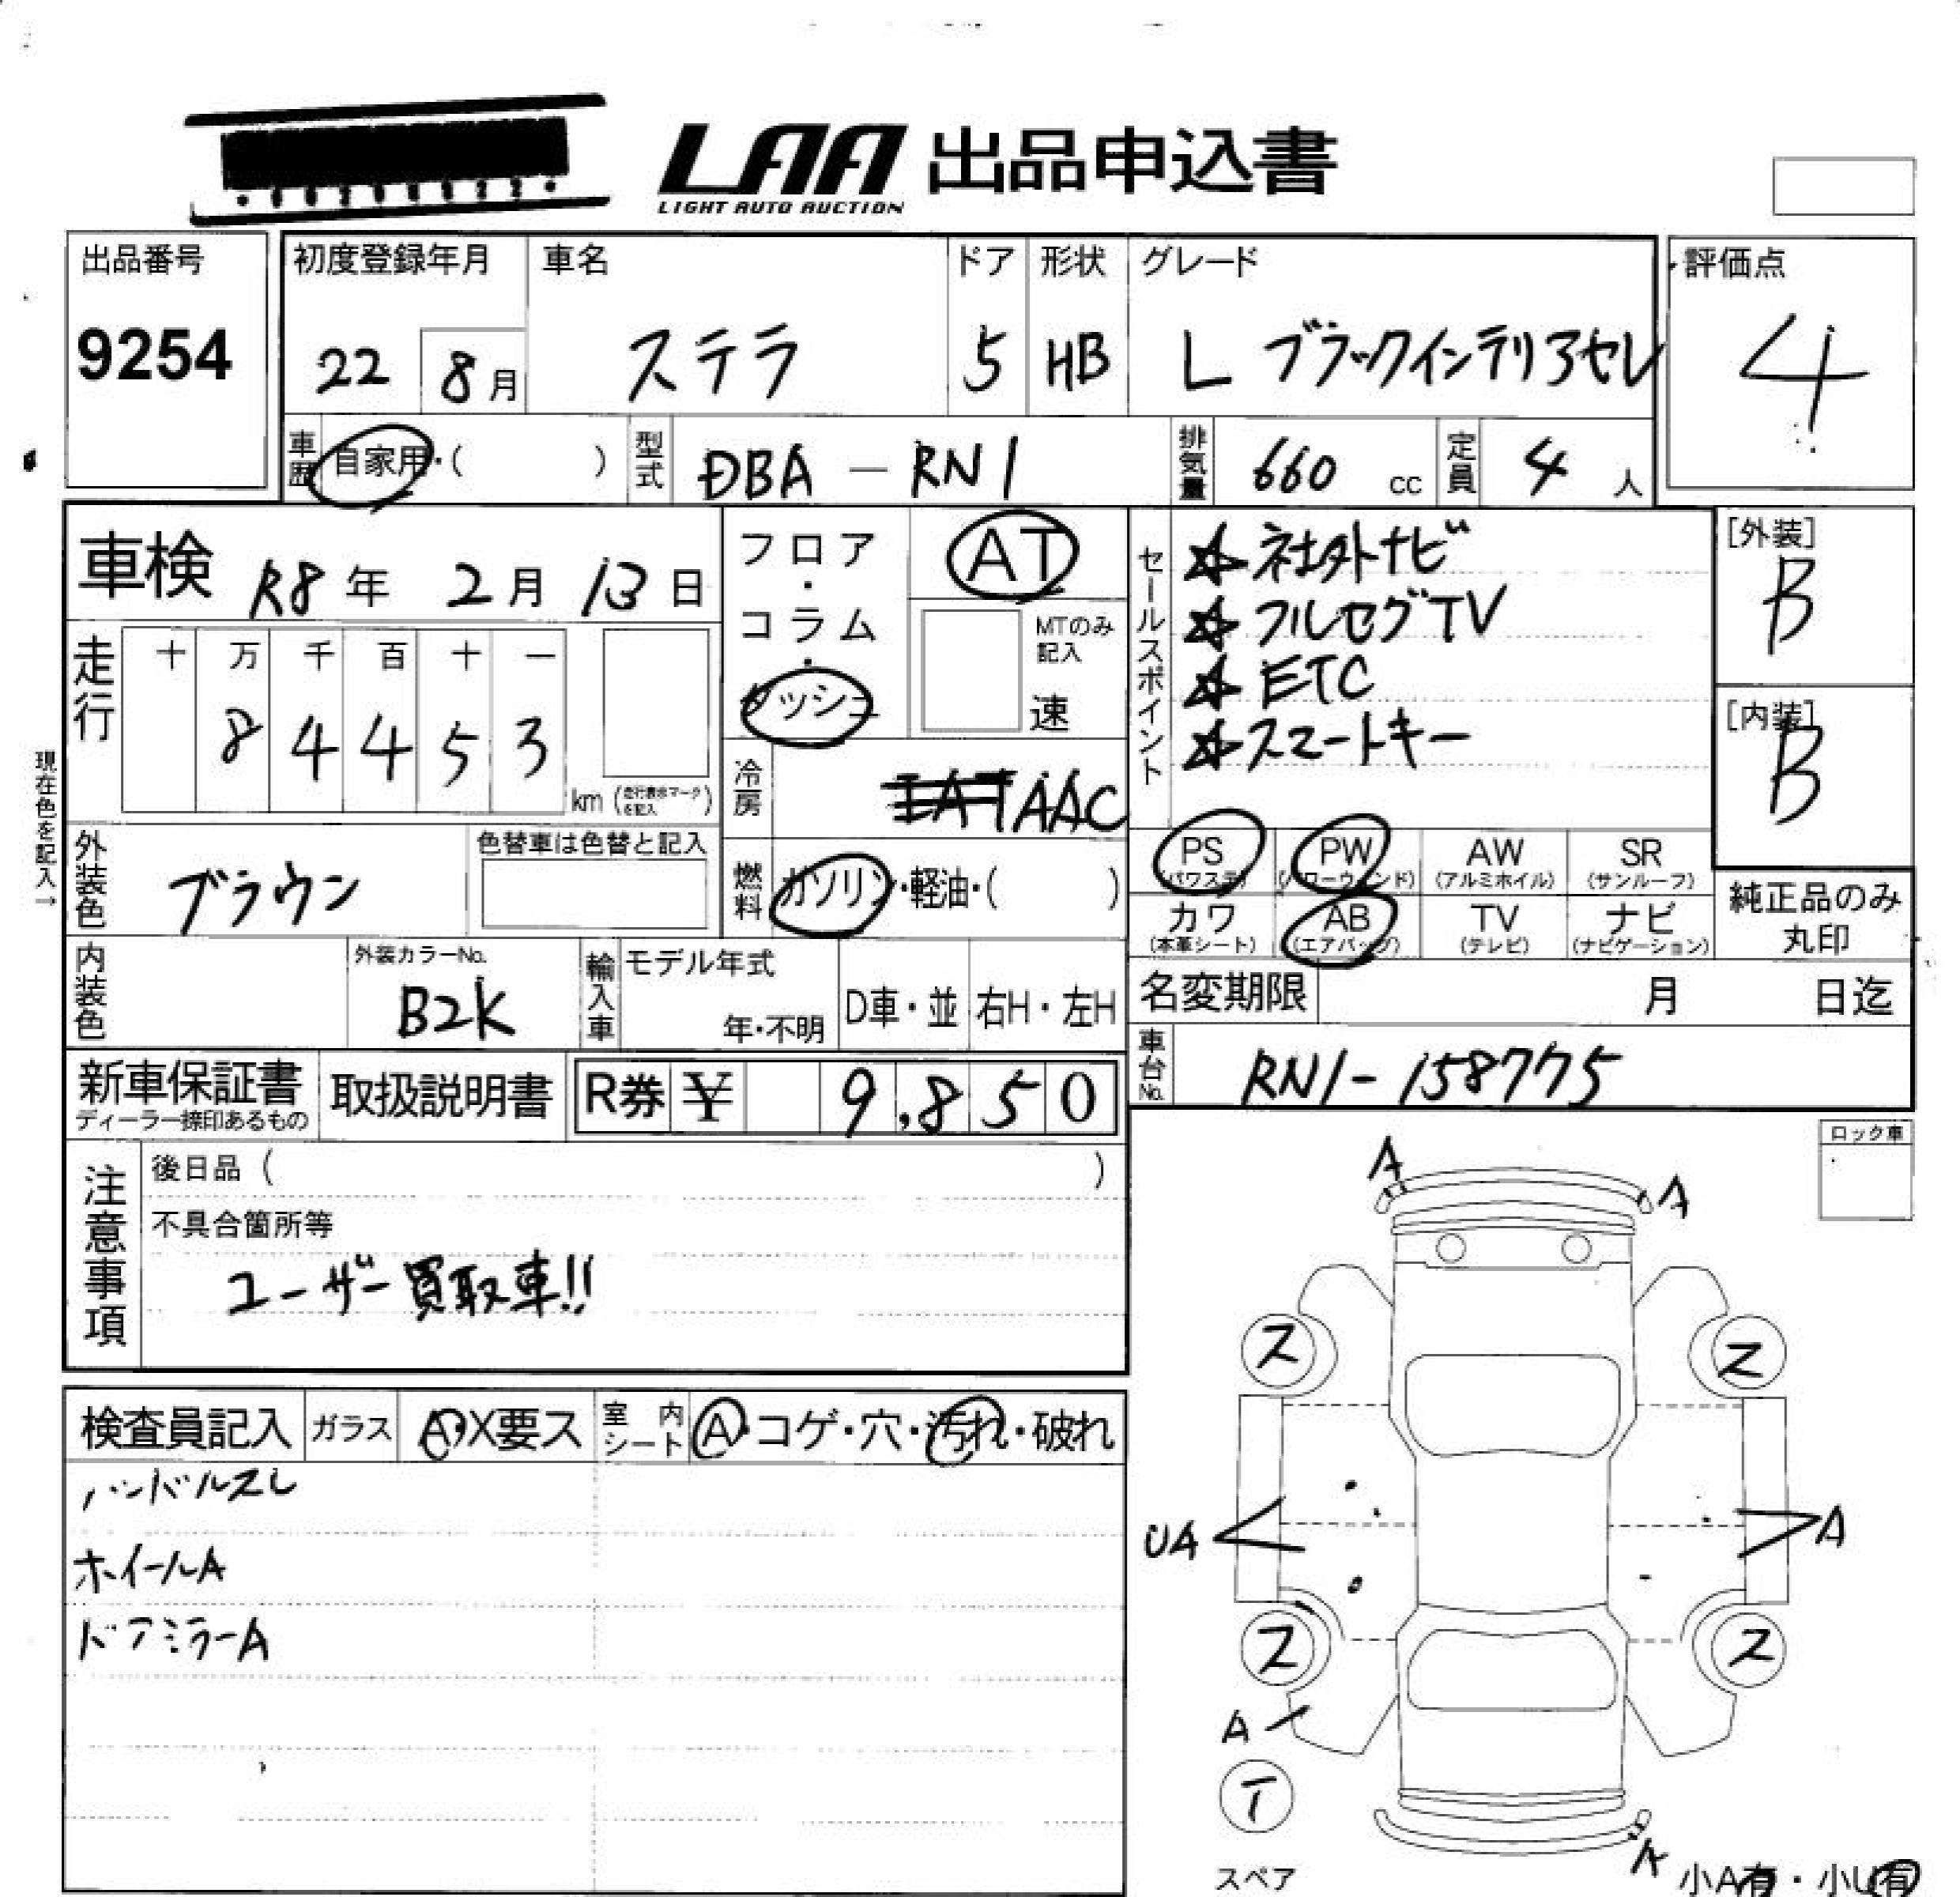 LAA 出品申込書
LIGHT AUTO AUCTION
出品番号
9254
初度登録年月
22 8月
車名
ステラ
ドア
5
形状
HB
グレード
L ブラックインテリアセレ
評価点
4
車歴 自家用・( )
型式 DBA-RN1
排気量 660 cc
定員 4 人
車検 R8年 2月 13日
フロア・コラム・ダッシュ
AT
MTのみ記入
速
セールスポイント
☆社外ナビ
☆フルセグTV
☆ETC
☆スマートキー
[外装]
B
[内装]
B
走行
十 万 千 百 十 一
8 4 4 5 3
km (走行表示マークを記入)
現在色を記入→
冷房 AAC
外装色 ブラウン
色替車は色替と記入
燃料 ガソリン・軽油・( )
PS (パワステ)
PW (パワーウィンド)
AW (アルミホイル)
SR (サンルーフ)
カワ (本革シート)
AB (エアバッグ)
TV (テレビ)
ナビ (ナビゲーション)
純正品のみ丸印
内装色
外装カラーNo.
B2K
輸入車
モデル年式
年・不明
D車・並
右H・左H
名変期限 月 日迄
車台No. RN1-158775
新車保証書
ディーラー捺印あるもの
取扱説明書
R券 ¥ 9,850
注意事項
後日品 ( )
不具合箇所等
ユーザー買取車!!
ロック車
検査員記入
ガラス A・X要ス
室内シート A・コゲ・穴・汚れ・破れ
ハンドルスレ
ホイールA
ドアミラーA
A
A
ス
ス
UA
A
ス
ス
A
T
スペア
A
小A有・小U有